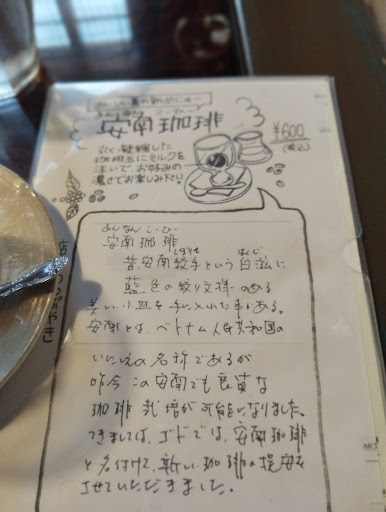 おいしい夏の新めにゅー
あんなん こーひー
安南珈琲
¥600
(税込)
丸く凝縮した
珈琲玉にミルクを
注いで お好みの
濃さでお楽しみ下さい
あんなん こーひー
安南珈琲
しぼりて はくじ
昔、安南絞手という白磁に
藍色の絞り文様のある
美しい小皿を手に入れた事がある。
安南とは、ベトナム人民共和国の
いにしえの名称であるが
昨今この安南でも良質な
珈琲栽培が可能になりました。
つきましては、ゴトーでは、安南珈琲
と名付けて、新しい珈琲の提案を
させていただきました。
つぶやき